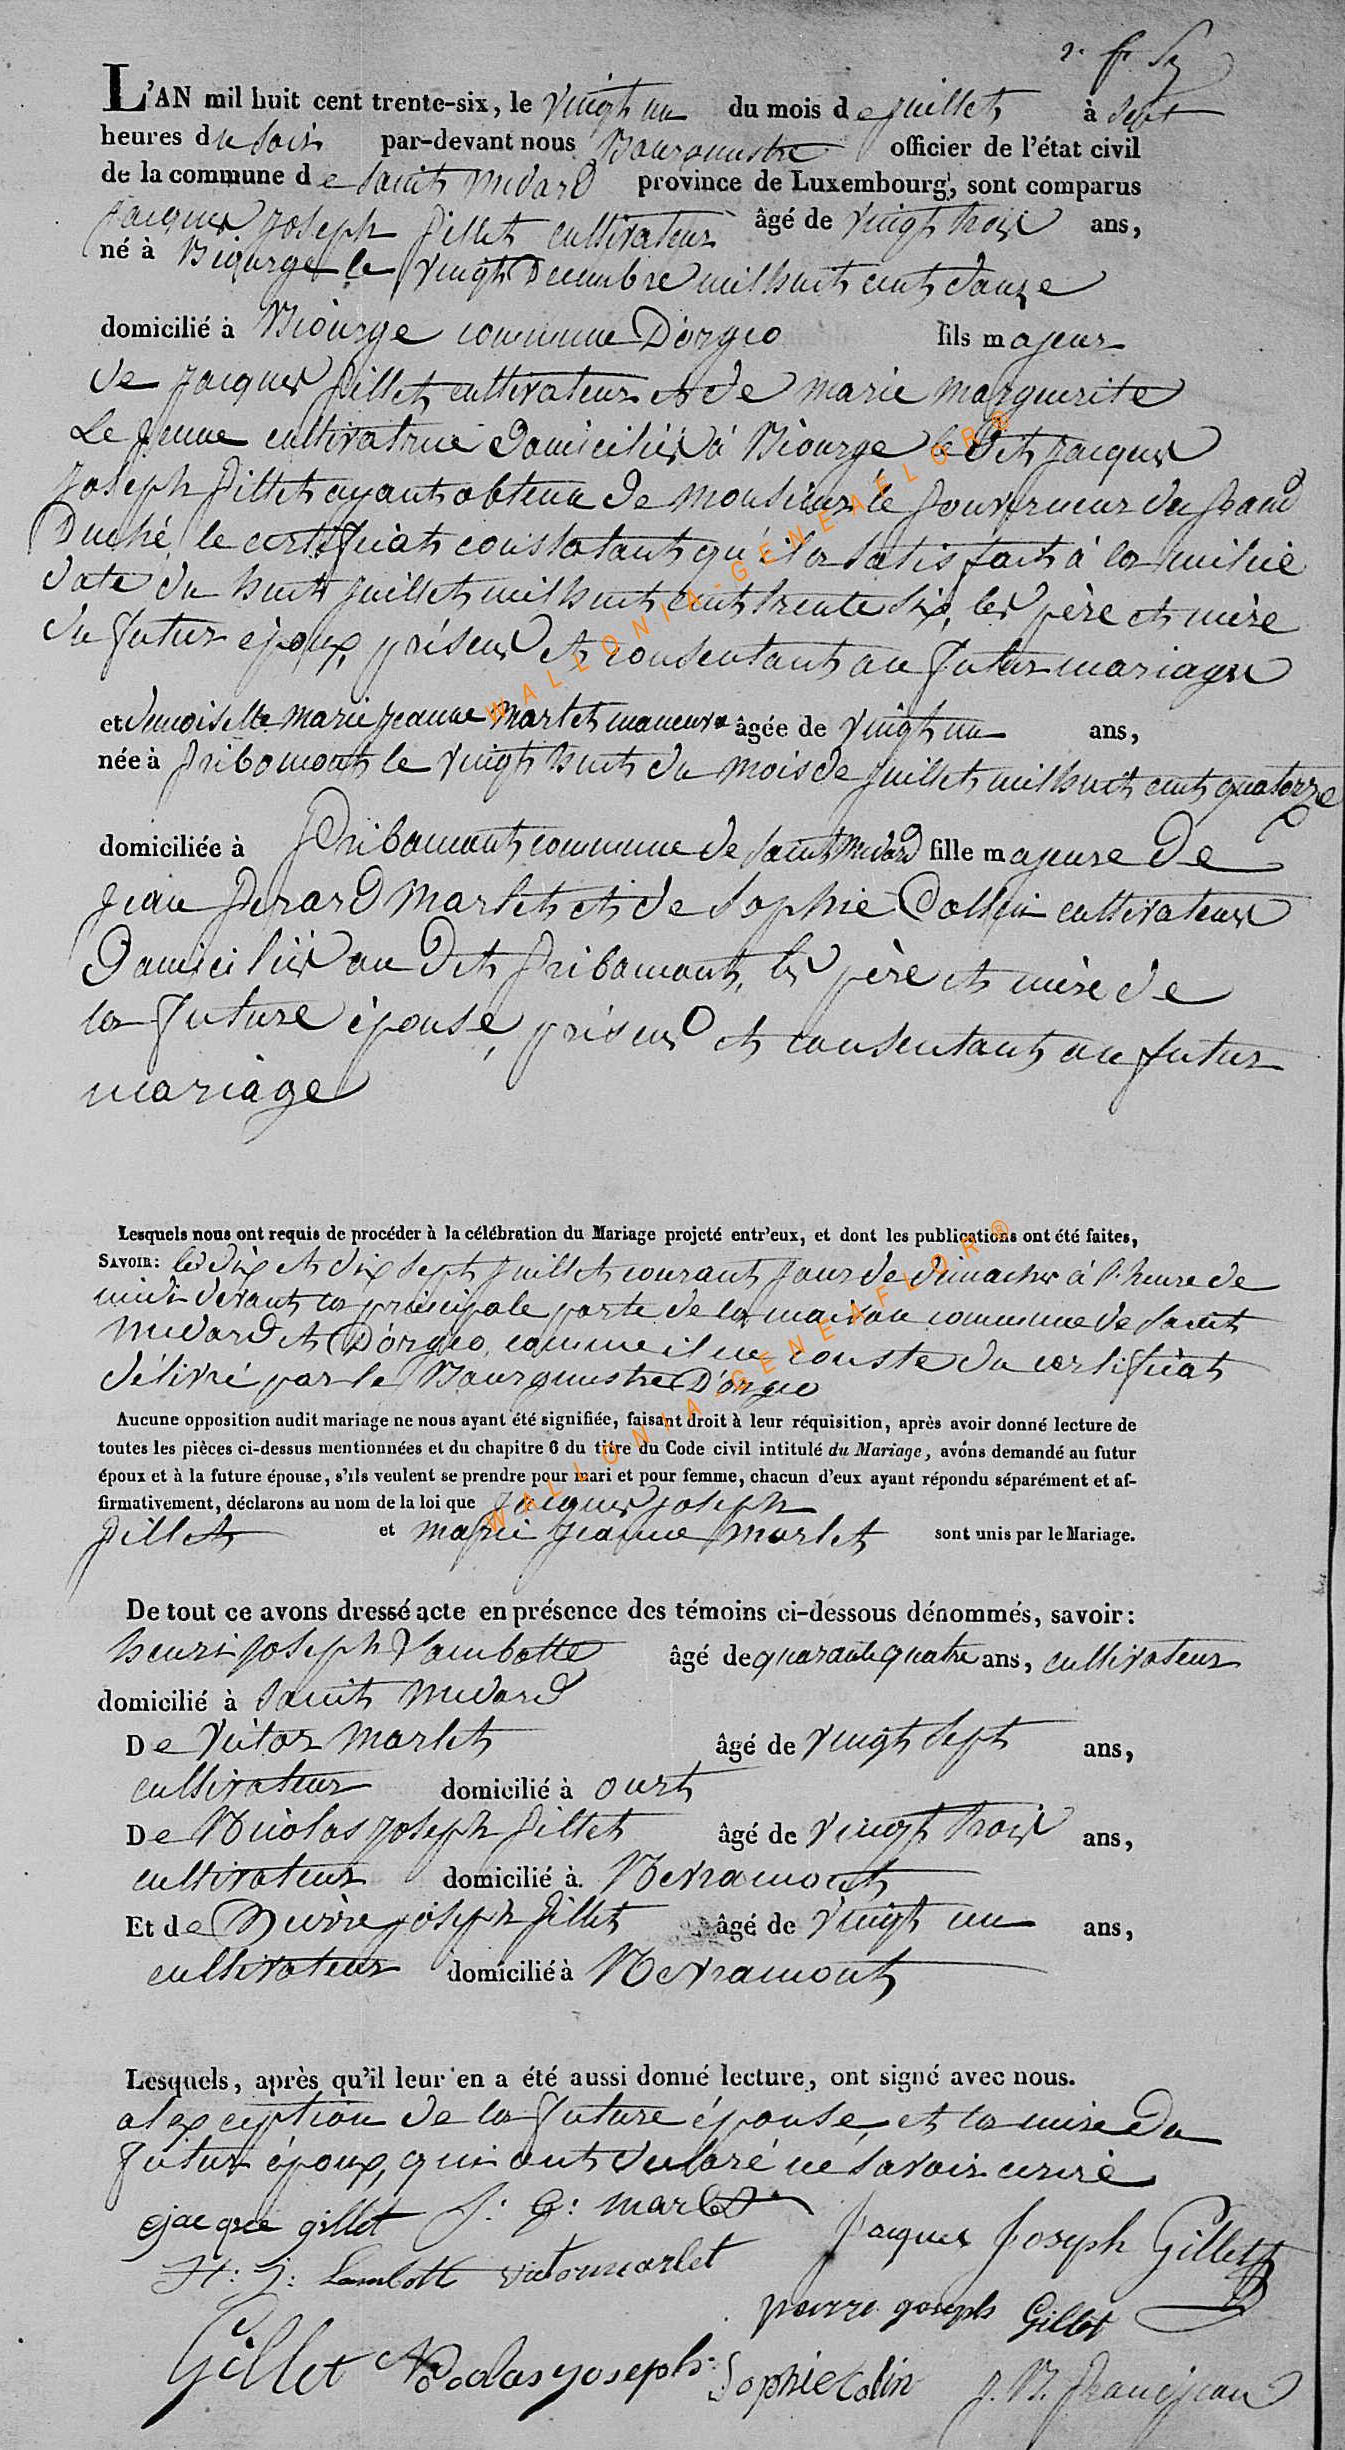 L'AN mil huit cent trente-six, le vingt un du mois de juillet à sept
heures du soir par-devant nous Bourgmestre officier de l'état civil
de la commune de Saint Medard province de Luxembourg, sont comparus
Jacques Joseph Gillet cultivateur âgé de vingt trois ans,
né à Biourge le vingt Decembre mil huit cent douze
domicilié à Biourge commune D'orgeo fils majeur
de Jacques Gillet cultivateur et de marie marguerite
Le Jeune cultivatrice Domiciliés à Biourge le Dit Jacques
Joseph Gillet ayant obtenu de monsieur le Gouverneur du Grand
Duché, le certificat constatant qu'il a satisfait à la milice
date du huit juillet mil huit cent trente six, les père et mère
du futur époux, présens et consentant au futur mariage
et demoiselle marie jeanne Marlet âgée de vingt un ans,
née à Gribomont le vingt huit du mois de juillet mil huit cent quatorze
domiciliée à Gribomont commune de Saint Medard fille majeure De
Jean Gerard Marlet et de Sophie Collin cultivateurs
Domiciliés au Dit Gribomont, les père et mère de
la future épouse, présens et consentant au futur
mariage
Lesquels nous ont requis de procéder à la célébration du Mariage projcté entr'eux, et dont les publications ont été faites,
SAVOIR: les dix et dix sept juillet courant jour de dimanche à l'heure de
midi devant la principale porte de la maison commune de Saint
Medard et D'orgeo, comme il en conste du certificat
délivré par le Bourgmestre D'orgeo
Aucune opposition audit mariage ne nous ayant été signifiée, faisant droit à leur réquisition, après avoir donné lecture de
toutes les pièces ci-dessus mentionnées et du chapitre 6 du titre du Code civil intitulé du Mariage, avons demandé au futur
époux et à la future épouse, s'ils veulent se prendre pour mari et pour femme, chacun d'eux ayant répondu séparément et af-
firmativement, déclarons au nom de la loi que Jacques Joseph
Gillet et marie Jeanne Marlet sont unis par le Mariage.
De tout ce avons dressé acte en présence des témoins ci-dessous dénommés, savoir:
henri Joseph Lambotte âgé de quarante quatre ans, cultivateur
domicilié à Saint Medard
De Victor Marlet âgé de vingt sept ans,
cultivateur domicilié à ourt
De Nicolas Joseph Gillet âgé de vingt trois ans,
cultivateur domicilié à Nevramont
Et de Pierre joseph Gillet âgé de vingt un ans,
cultivateur domicilié à Nevramont
Lesquels, après qu'il leur en a été aussi donné lecture, ont signé avec nous.
a lexception de la future épouse, et la mère du
futur époux, qui ont declaré ne savoir ecrire
jacque gillet J: G: marlet Jacques Joseph Gillet
H: J: Lambotte victor marlet
pierre joseph Gillet
Gillet Nicolas joseph Sophie Colin J. N. Francjean
WALLONIA-GENEAFLOR®
WALLONIA-GENEAFLOR®